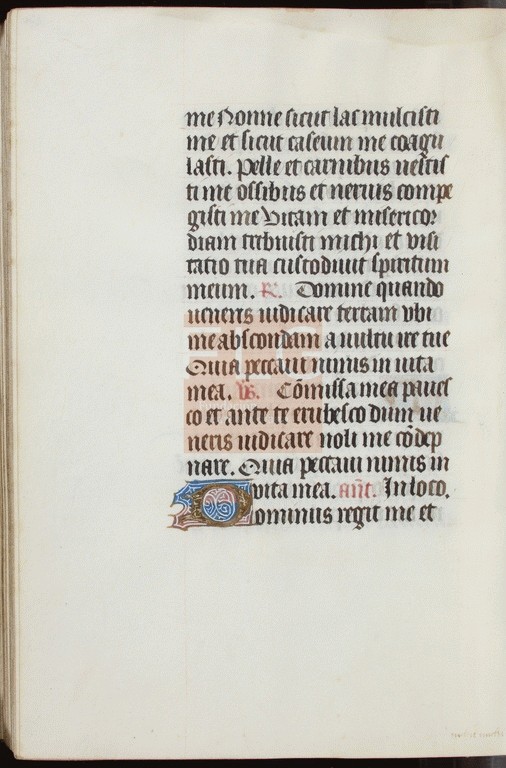 me Nonne sicut lac mulcisti
me et sicut caseum me coagu
lasti. Pelle et carnibus uestis
ti me ossibus et neruis compe
gisti me Vitam et misericor
diam tribuisti michi et visi
tatio tua custodiuit spiritum
meum. R. Domine quando
ueneris iudicare terram vbi
me abscondam a uultu ire tue
Quia peccaui nimis in uita
mea. V. Cōmissa mea paues
co et ante te erubesco dum ue
neris iudicare noli me cōdep
nare. Quia peccaui nimis in
vita mea. añt. In loco.
Dominus regit me et